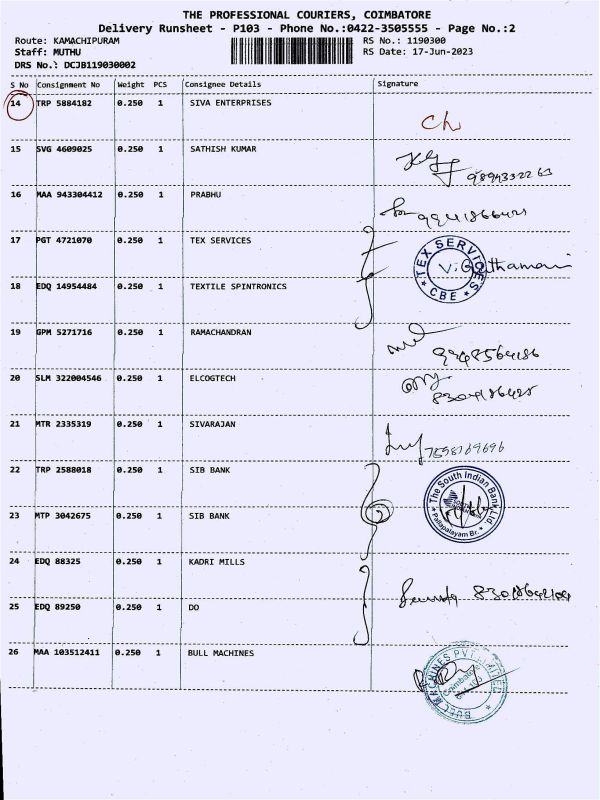 THE PROFESSIONAL COURIERS, COIMBATORE
Delivery Runsheet - P103 - Phone No.:0422-3505555 - Page No.:2
Route: KAMACHIPURAM RS No.: 1190300
Staff: MUTHU RS Date: 17-Jun-2023
DRS No.: DCJB119030002
S No Consignment No Weight PCS Consignee Details Signature
14 TRP 5884182 0.250 1 SIVA ENTERPRISES
15 SVG 4609025 0.250 1 SATHISH KUMAR
16 MAA 943304412 0.250 1 PRABHU
17 PGT 4721070 0.250 1 TEX SERVICES
TEX SERVICES
CBE
18 EDQ 14954484 0.250 1 TEXTILE SPINTRONICS
19 GPM 5271716 0.250 1 RAMACHANDRAN
20 SLM 322004546 0.250 1 ELCOGTECH
21 MTR 2335319 0.250 1 SIVARAJAN
22 TRP 2588018 0.250 1 SIB BANK
The South Indian Bank Ltd.
Pallapalayam Br.
23 MTP 3042675 0.250 1 SIB BANK
24 EDQ 88325 0.250 1 KADRI MILLS
25 EDQ 89250 0.250 1 DO
26 MAA 103512411 0.250 1 BULL MACHINES
BULL MACHINES PVT LIMITED
Coimbatore